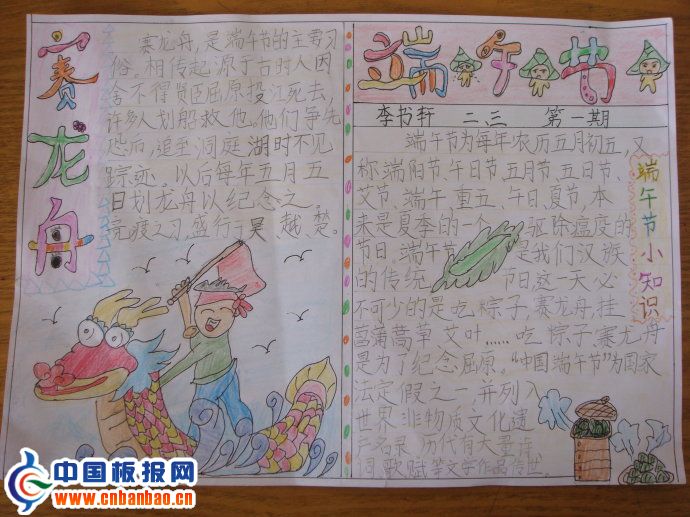 赛龙舟
赛龙舟,是端午节的主要习
俗。相传起源于古时人因
舍不得贤臣屈原投江死去,
许多人划船救他。他们争先
恐后,追至洞庭湖时不见
踪迹。以后每年五月五
日划龙舟以纪念之。
竞渡之习,盛行于吴、越、楚。
端午节
李书轩 二、三 第一期
端午节为每年农历五月初五,又
称端阳节、午日节、五月节、五日节、
艾节、端午、重五、午日、夏节,本
来是夏季的一个驱除瘟疫的
节日,端午节是我们汉族
的传统节日,这一天必
不可少的是吃粽子,赛龙舟,挂
菖蒲蒿草艾叶……吃粽子赛龙舟
是为了纪念屈原。“中国端午节”为国家
法定假之一并列入
世界非物质文化遗
名录 历代有大量诗
词歌赋等文学作品传世。
端午节小知识
中国板报网
www.cnbanbao.cn